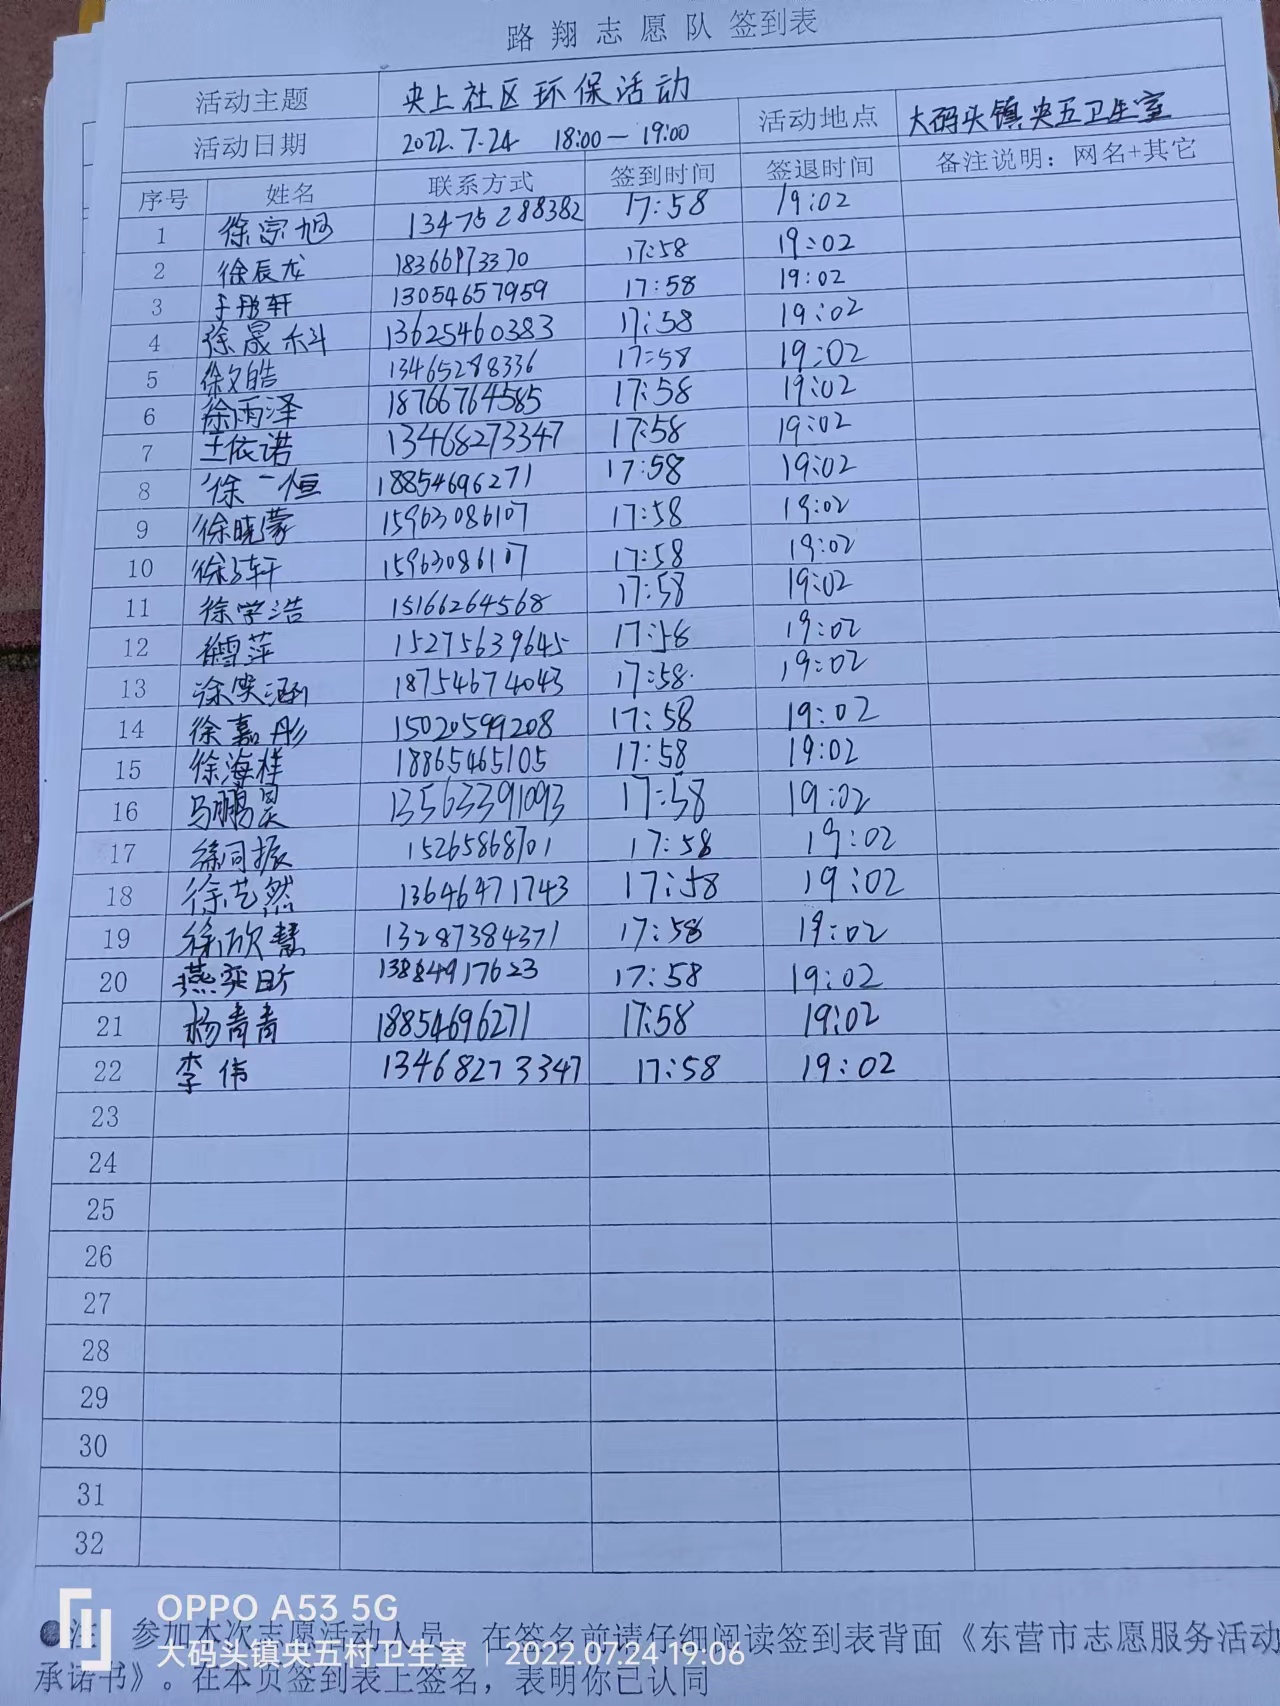 路翔志愿队签到表
活动主题 央上社区环保活动
活动日期 2022.7.24 18:00—19:00 活动地点 大码头镇央五卫生室
序号 姓名 联系方式 签到时间 签退时间 备注说明：网名+其它
1 徐宗旭 13475288382 17:58 19:02
2 徐辰龙 18366973370 17:58 19:02
3 于彤轩 13054657959 17:58 19:02
4 徐晟 13625460383 17:58 19:02
5 徐文皓 13465288336 17:58 19:02
6 徐雨泽 18766764585 17:58 19:02
7 王依诺 13468273347 17:58 19:02
8 徐一恒 18854696271 17:58 19:02
9 徐晓蒙 15963086107 17:58 19:02
10 徐子轩 15963086107 17:58 19:02
11 徐学浩 15166264568 17:58 19:02
12 徐雪萍 15275639645 17:58 19:02
13 徐笑涵 18754674043 17:58. 19:02
14 徐嘉彤 15020599208 17:58 19:02
15 徐海梓 18865465105 17:58 19:02
16 马鹏昊 13563391093 17:58 19:02
17 徐同振 15265868701 17:58 19:02
18 徐艺然 13646471743 17:58 19:02
19 徐欣慧 13287384371 17:58 19:02
20 燕奕昕 13884917623 17:58 19:02
21 杨青青 18854696271 17:58 19:02
22 李伟 13468273347 17:58 19:02
23
24
25
26
27
28
29
30
31
32
●注 参加本次志愿活动人员 在签名前请仔细阅读签到表背面《东营市志愿服务活动
承诺书》。在本页签到表上签名，表明你已认同
OPPO A53 5G
大码头镇央五村卫生室 | 2022.07.24 19:06